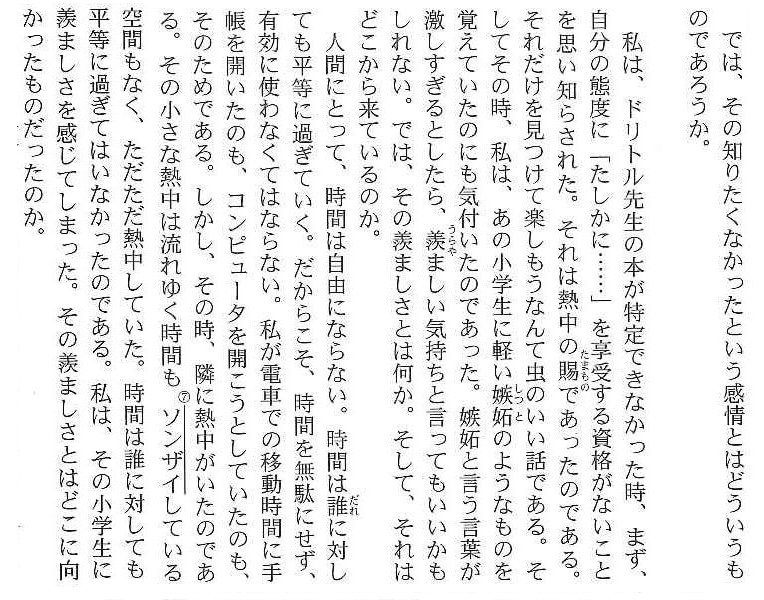 では、その知りたくなかったという感情とはどういうも
のであろうか。
私は、ドリトル先生の本が特定できなかった時、まず、
自分の態度に「たしかに……」を享受する資格がないこと
を思い知らされた。それは熱中の賜であったのである。
たまもの
それだけを見つけて楽しもうなんて虫のいい話である。そ
してその時、私は、あの小学生に軽い嫉妬のようなものを
しっと
覚えていたのにも気付いたのであった。嫉妬と言う言葉が
激しすぎるとしたら、羨ましい気持ちと言ってもいいかも
うらや
しれない。では、その羨ましさとは何か。そして、それは
どこから来ているのか。
人間にとって、時間は自由にならない。時間は誰に対し
だれ
ても平等に過ぎていく。だからこそ、時間を無駄にせず、
有効に使わなくてはならない。私が電車での移動時間に手
帳を開いたのも、コンピュータを開こうとしていたのも、
そのためである。しかし、その時、隣に熱中がいたのであ
る。その小さな熱中は流れゆく時間も⑦ソンザイしている
空間もなく、ただただ熱中していた。時間は誰に対しても
平等に過ぎてはいなかったのである。私は、その小学生に
羨ましさを感じてしまった。その羨ましさとはどこに向
かったものだったのか。